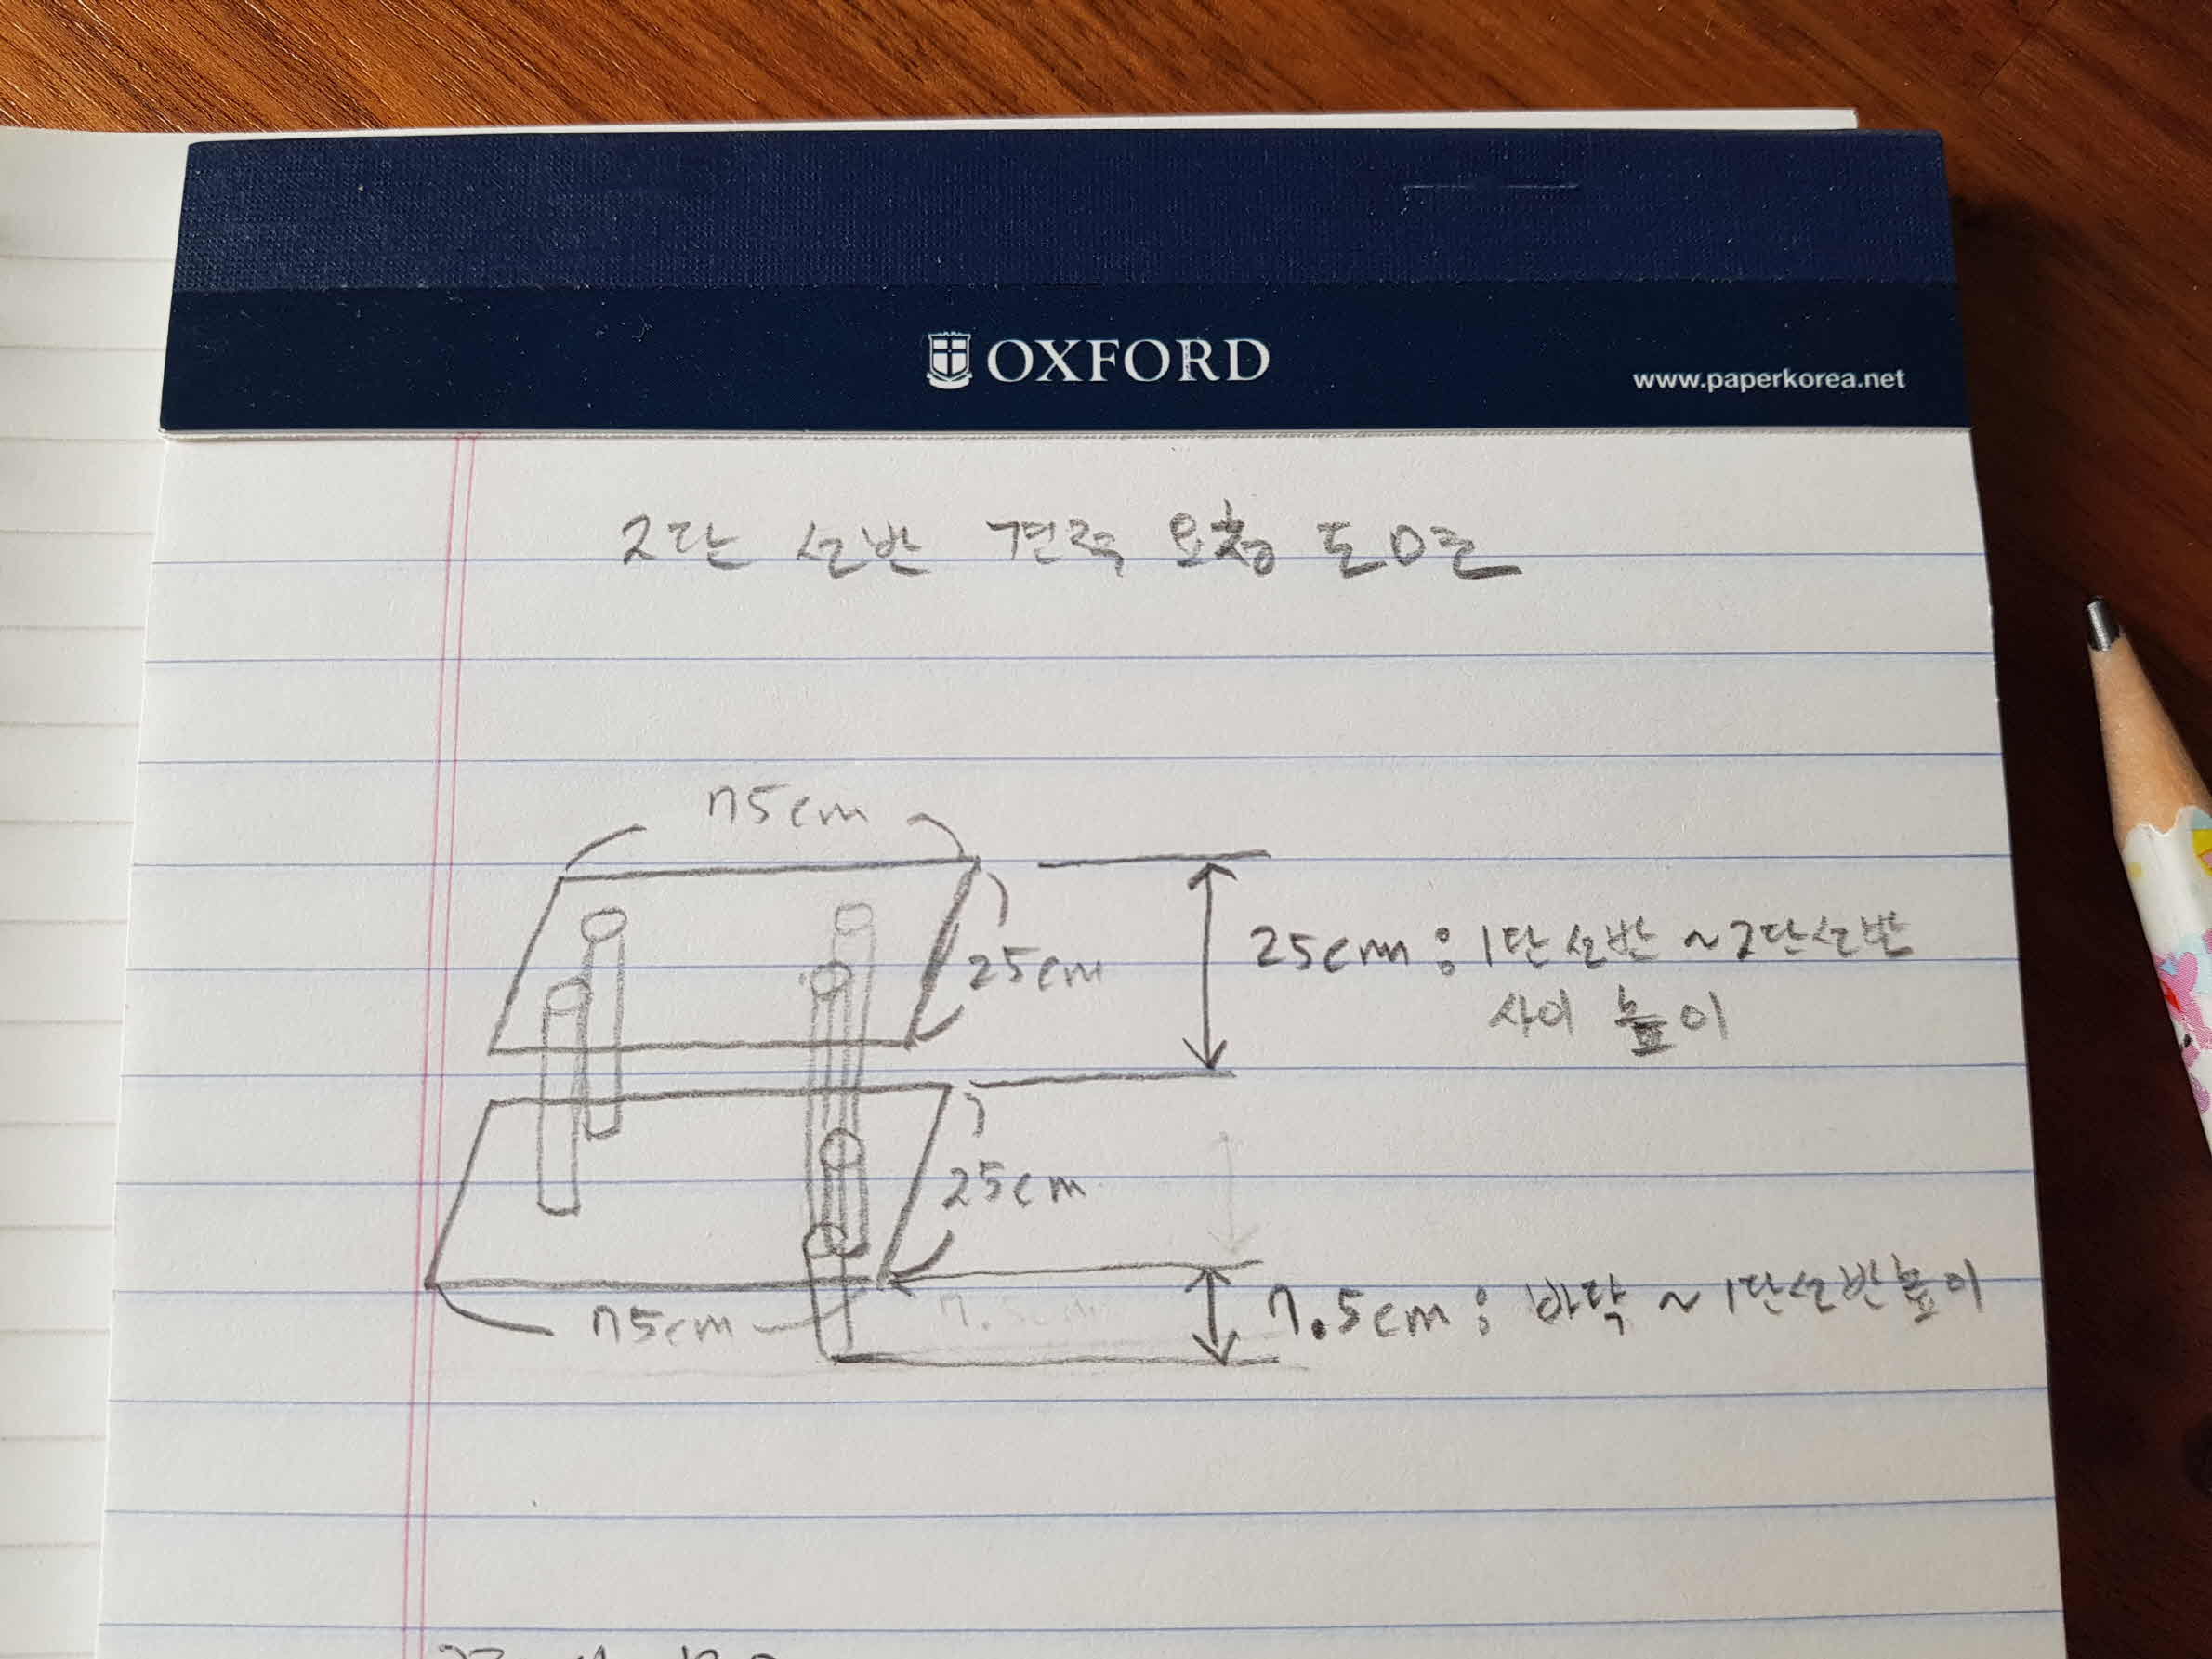 OXFORD
www.paperkorea.net
2단 선반 견적 요청 도면
75cm
25cm
25cm : 1단선반 ~ 2단선반
사이 높이
25cm
75cm
7.5cm
7.5cm : 바닥 ~ 1단선반높이